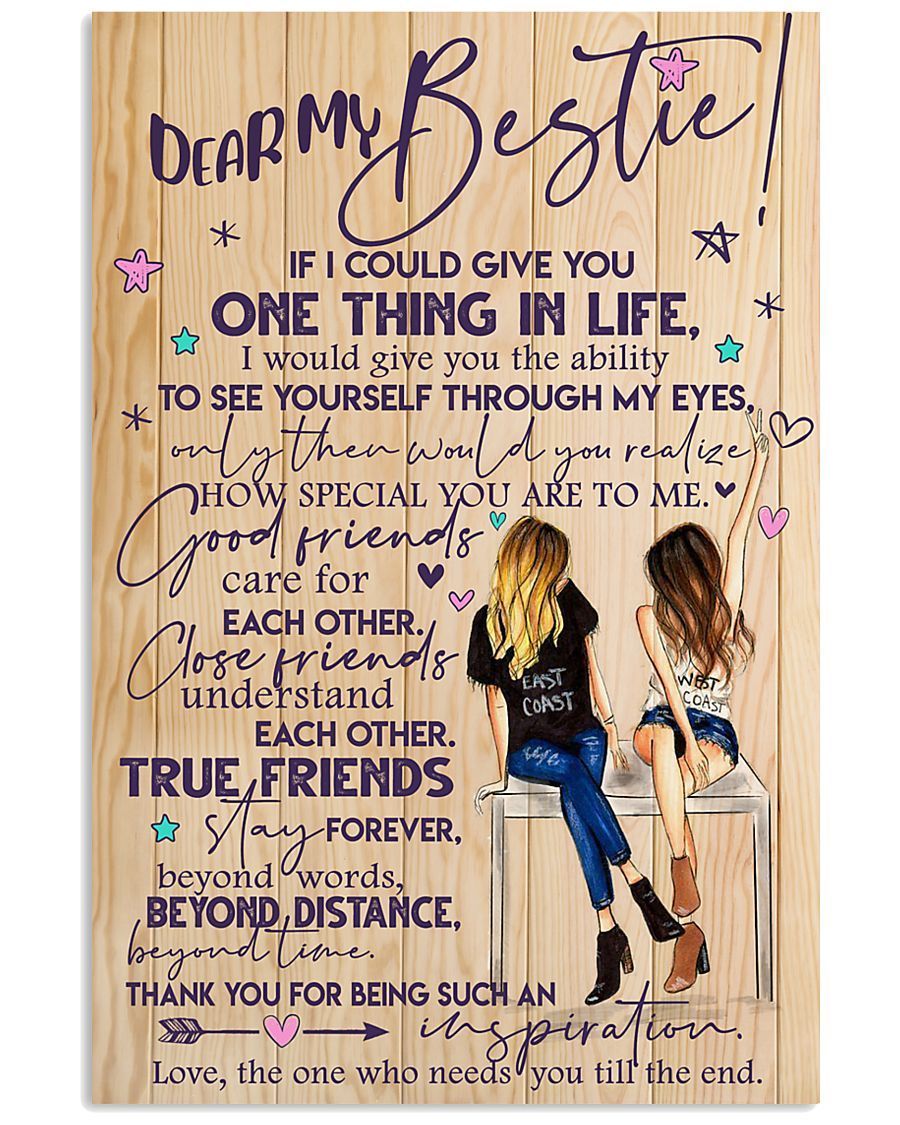 DEAR MY Bestie!
IF I COULD GIVE YOU
ONE THING IN LIFE,
I would give you the ability
TO SEE YOURSELF THROUGH MY EYES,
only then would you realize
HOW SPECIAL YOU ARE TO ME.
Good friends
care for
EACH OTHER.
Close friends
understand
EACH OTHER.
TRUE FRIENDS
stay FOREVER,
beyond words,
BEYOND DISTANCE,
beyond time.
THANK YOU FOR BEING SUCH AN
inspiration.
Love, the one who needs you till the end.
EAST
COAST
WEST
COAST